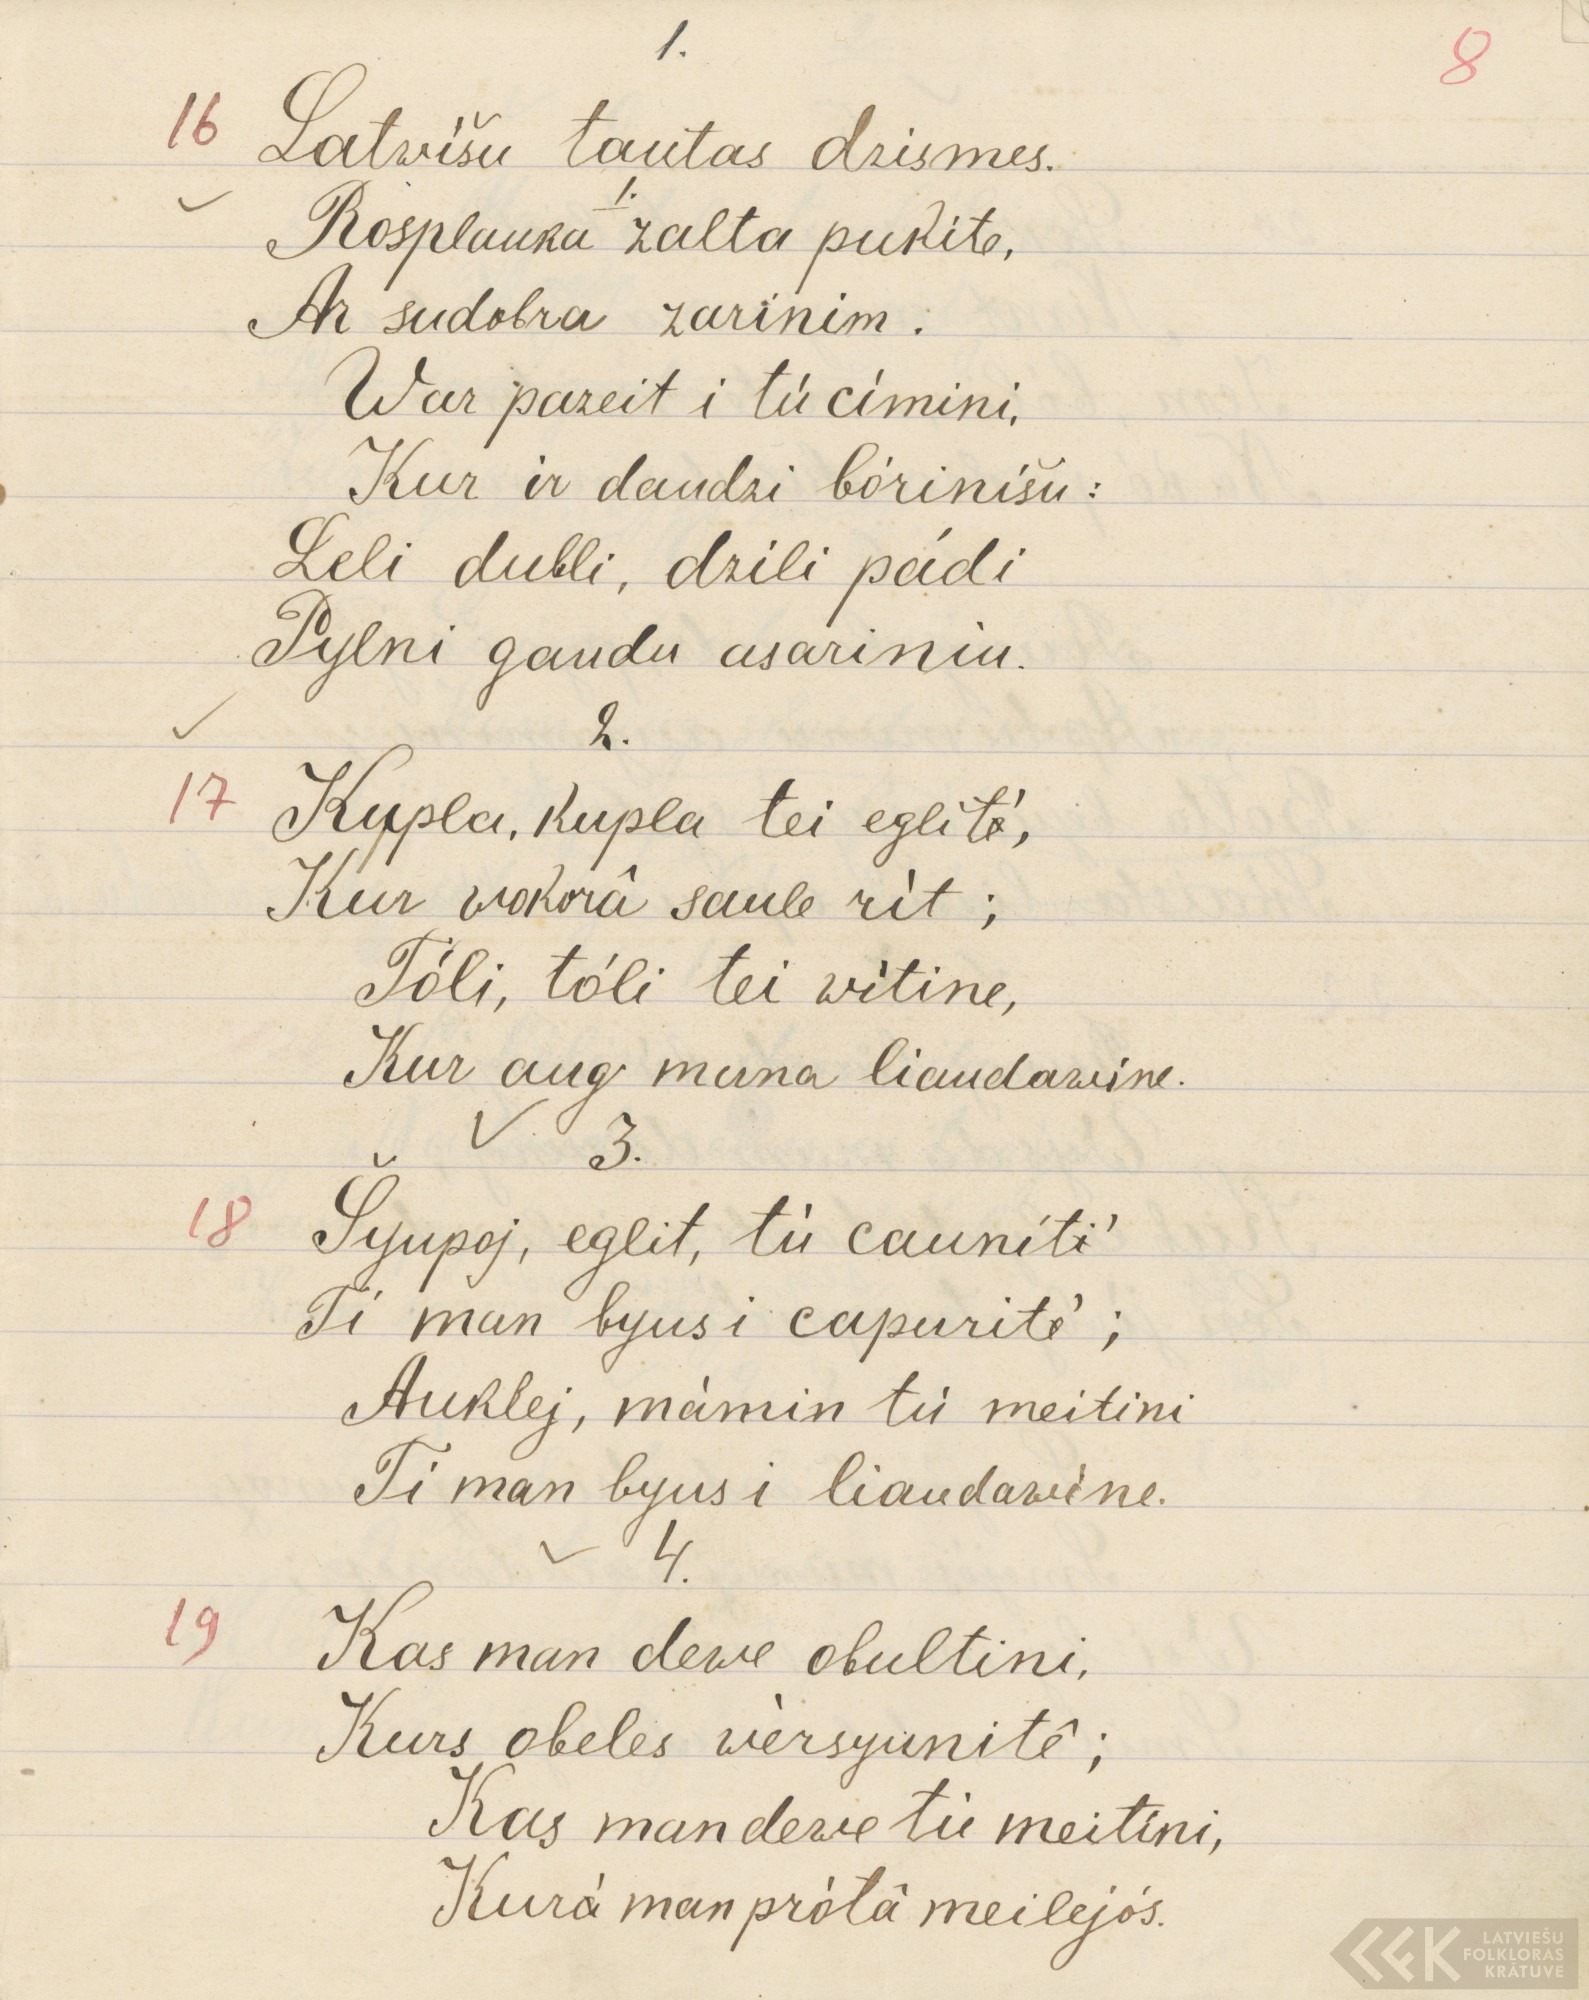 1.
8
16 Latwíšu tautas dzismes.
1.
Rosplauka zalta pukite,
Ar sudobra zarinim.
War pazeit i tú címini,
Kur ir daudzi bóriníšu:
Leli dubli, dzili pádi
Pylni gaudu asariniu.
2.
17 Kupla, kupla tei eglíté,
Kur wokorâ saule rìt;
Tóli, tóli tei wìtine,
Kur aug muna liaudawine.
3.
18 Šyupoj, eglit, tù cauníti
Tí man byus i capurité;
Auklej, màmin tú meitini
Tí man byus i liaudawìne.
4.
19 Kas man dewe obultini,
Kurs obeles wèrsyunitê;
Kas man dewe tù meitíni,
Kurá man pròtâ meilejós.
LATVIEŠU
FOLKLORAS
KRĀTUVE